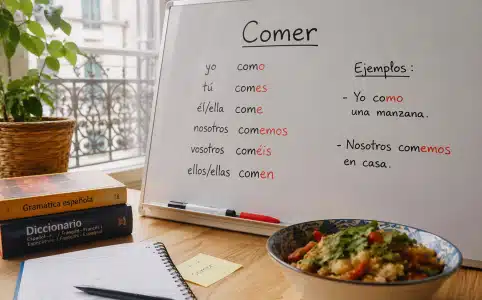 Comer
yo como
tú comes
él/ella come
nosotros comemos
vosotros coméis
ellos/ellas comen
Ejemplos:
- Yo como
una manzana.
- Nosotros comemos
en casa.
Gramatica española
Diccionario
comer